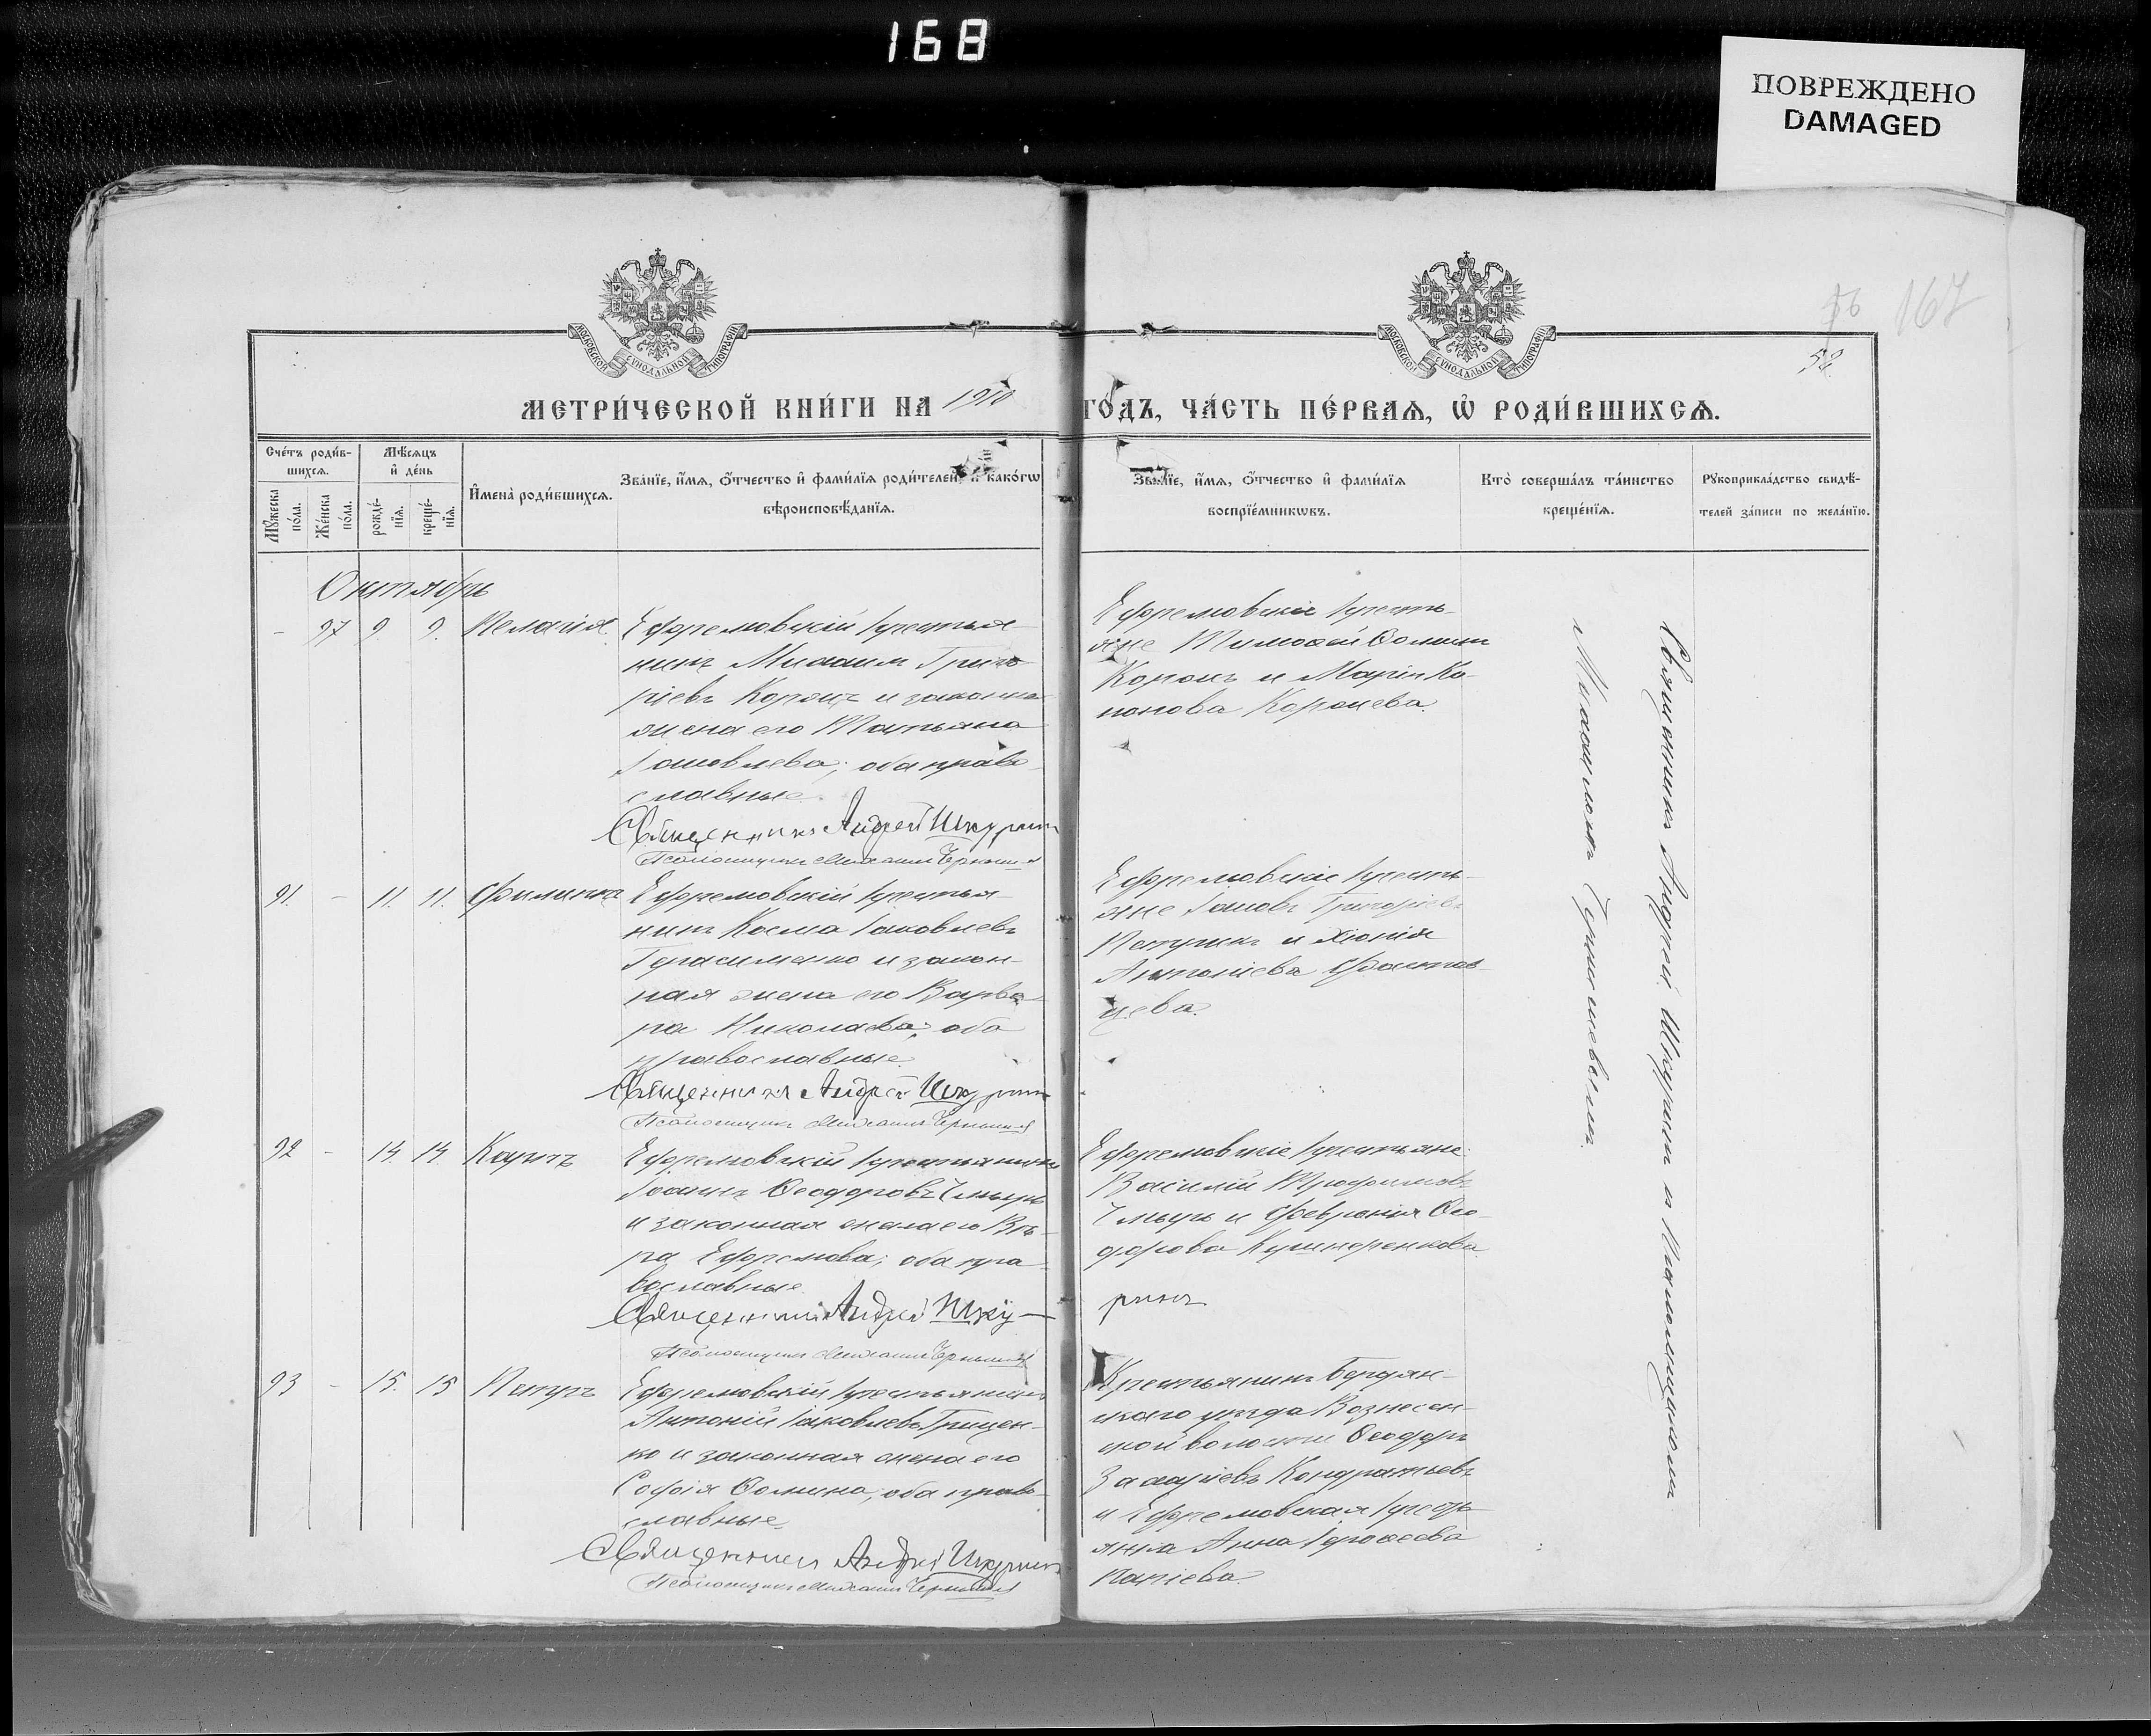 168
ПОВРЕЖДЕНО
DAMAGED
167
52.
МОСКОВСКОЙ СѴНОДАЛЬНОЙ ТИПОГРАФІИ
МОСКОВСКОЙ СѴНОДАЛЬНОЙ ТИПОГРАФІИ
МЕТРИ́ЧЕСКОЙ КНИ́ГИ НА 1910 ГО́ДЪ, ЧА́СТЬ ПЕ́РВАѦ, Ѡ҆ РОДИ́ВШИХСѦ.
Сче́тъ роди́в-
шихсѧ.
Мꙋ́жеска по́ла.
Же́нска по́ла.
Мѣ́сѧцъ
и҆ де́нь
рожде́-
нїѧ.
креще́-
нїѧ.
И҆мена̀ роди́вшихсѧ.
Зва́нїе, и҆́мѧ, ѻ҆́тчество и҆ фами́лїѧ роди́телей, и҆ како́гѡ
вѣроисповѣ́данїѧ.
Зва́нїе, и҆́мѧ, ѻ҆́тчество и҆ фами́лїѧ
воспрїе́мникѡвъ.
Кто̀ соверша́лъ та́инство
креще́нїѧ.
Рꙋкоприкла́дство свидѣ́-
телей за́писи по жела́нїю.
Октябрь
- 97 9. 9. Пелагія. Ефремовскій крестья-
нинъ Михаилъ Григо-
ріевъ Король и законная
жена его Татьяна
Іаковлева; оба право-
славные.
Священникъ Андрей Шкуринъ
Псаломщикъ Михаилъ Чернышев
Ефремовскіе кресть-
яне Тимоѳей Ѳоминъ
Король и Марія Ко-
нонова Королева.
91. - 11. 11. Филиппъ Ефремовскій крестья-
нинъ Косма Іаковлевъ
Герасименко и закон-
ная жена его Варва-
ра Николаева; оба
православные.
Священникъ Андрей Шкуринъ
Псаломщикъ Михаилъ Чернышев
Ефремовскіе кресть-
яне Іаковъ Григоріевъ
Петрикъ и Хіонія
Антоніева
цева.
92 - 14. 14. Карпъ Ефремовскій крестьянинъ
Іоаннъ Ѳеодоровъ Чмырь
и законная жена его Вѣ-
ра Ефремова; оба пра-
вославные.
Священникъ Андрей Шку-
ринъ
Псаломщикъ Михаилъ Чернышев
Ефремовскіе крестьяне
Василій Трофимовъ
Чмырь и Февронія Ѳео-
дорова Кушнеренкова.
93 - 15. 15 Петръ Ефремовскій крестьянинъ
Антоній Іаковлевъ Грицен-
ко и законная жена его
Софія Ѳомина; оба право-
славные.
Священникъ Андрей Шкуринъ
Псаломщикъ Михаилъ Чернышев
Крестьянинъ Бердян-
скаго уѣзда Вознесен-
ской волости Ѳеодоръ
Захаріевъ Кондратьевъ
и Ефремовская кресть-
янка Анна Іероѳеева
Священникъ Андрей Шкуринъ и Псаломщикомъ
Михаиломъ Чернышевымъ.